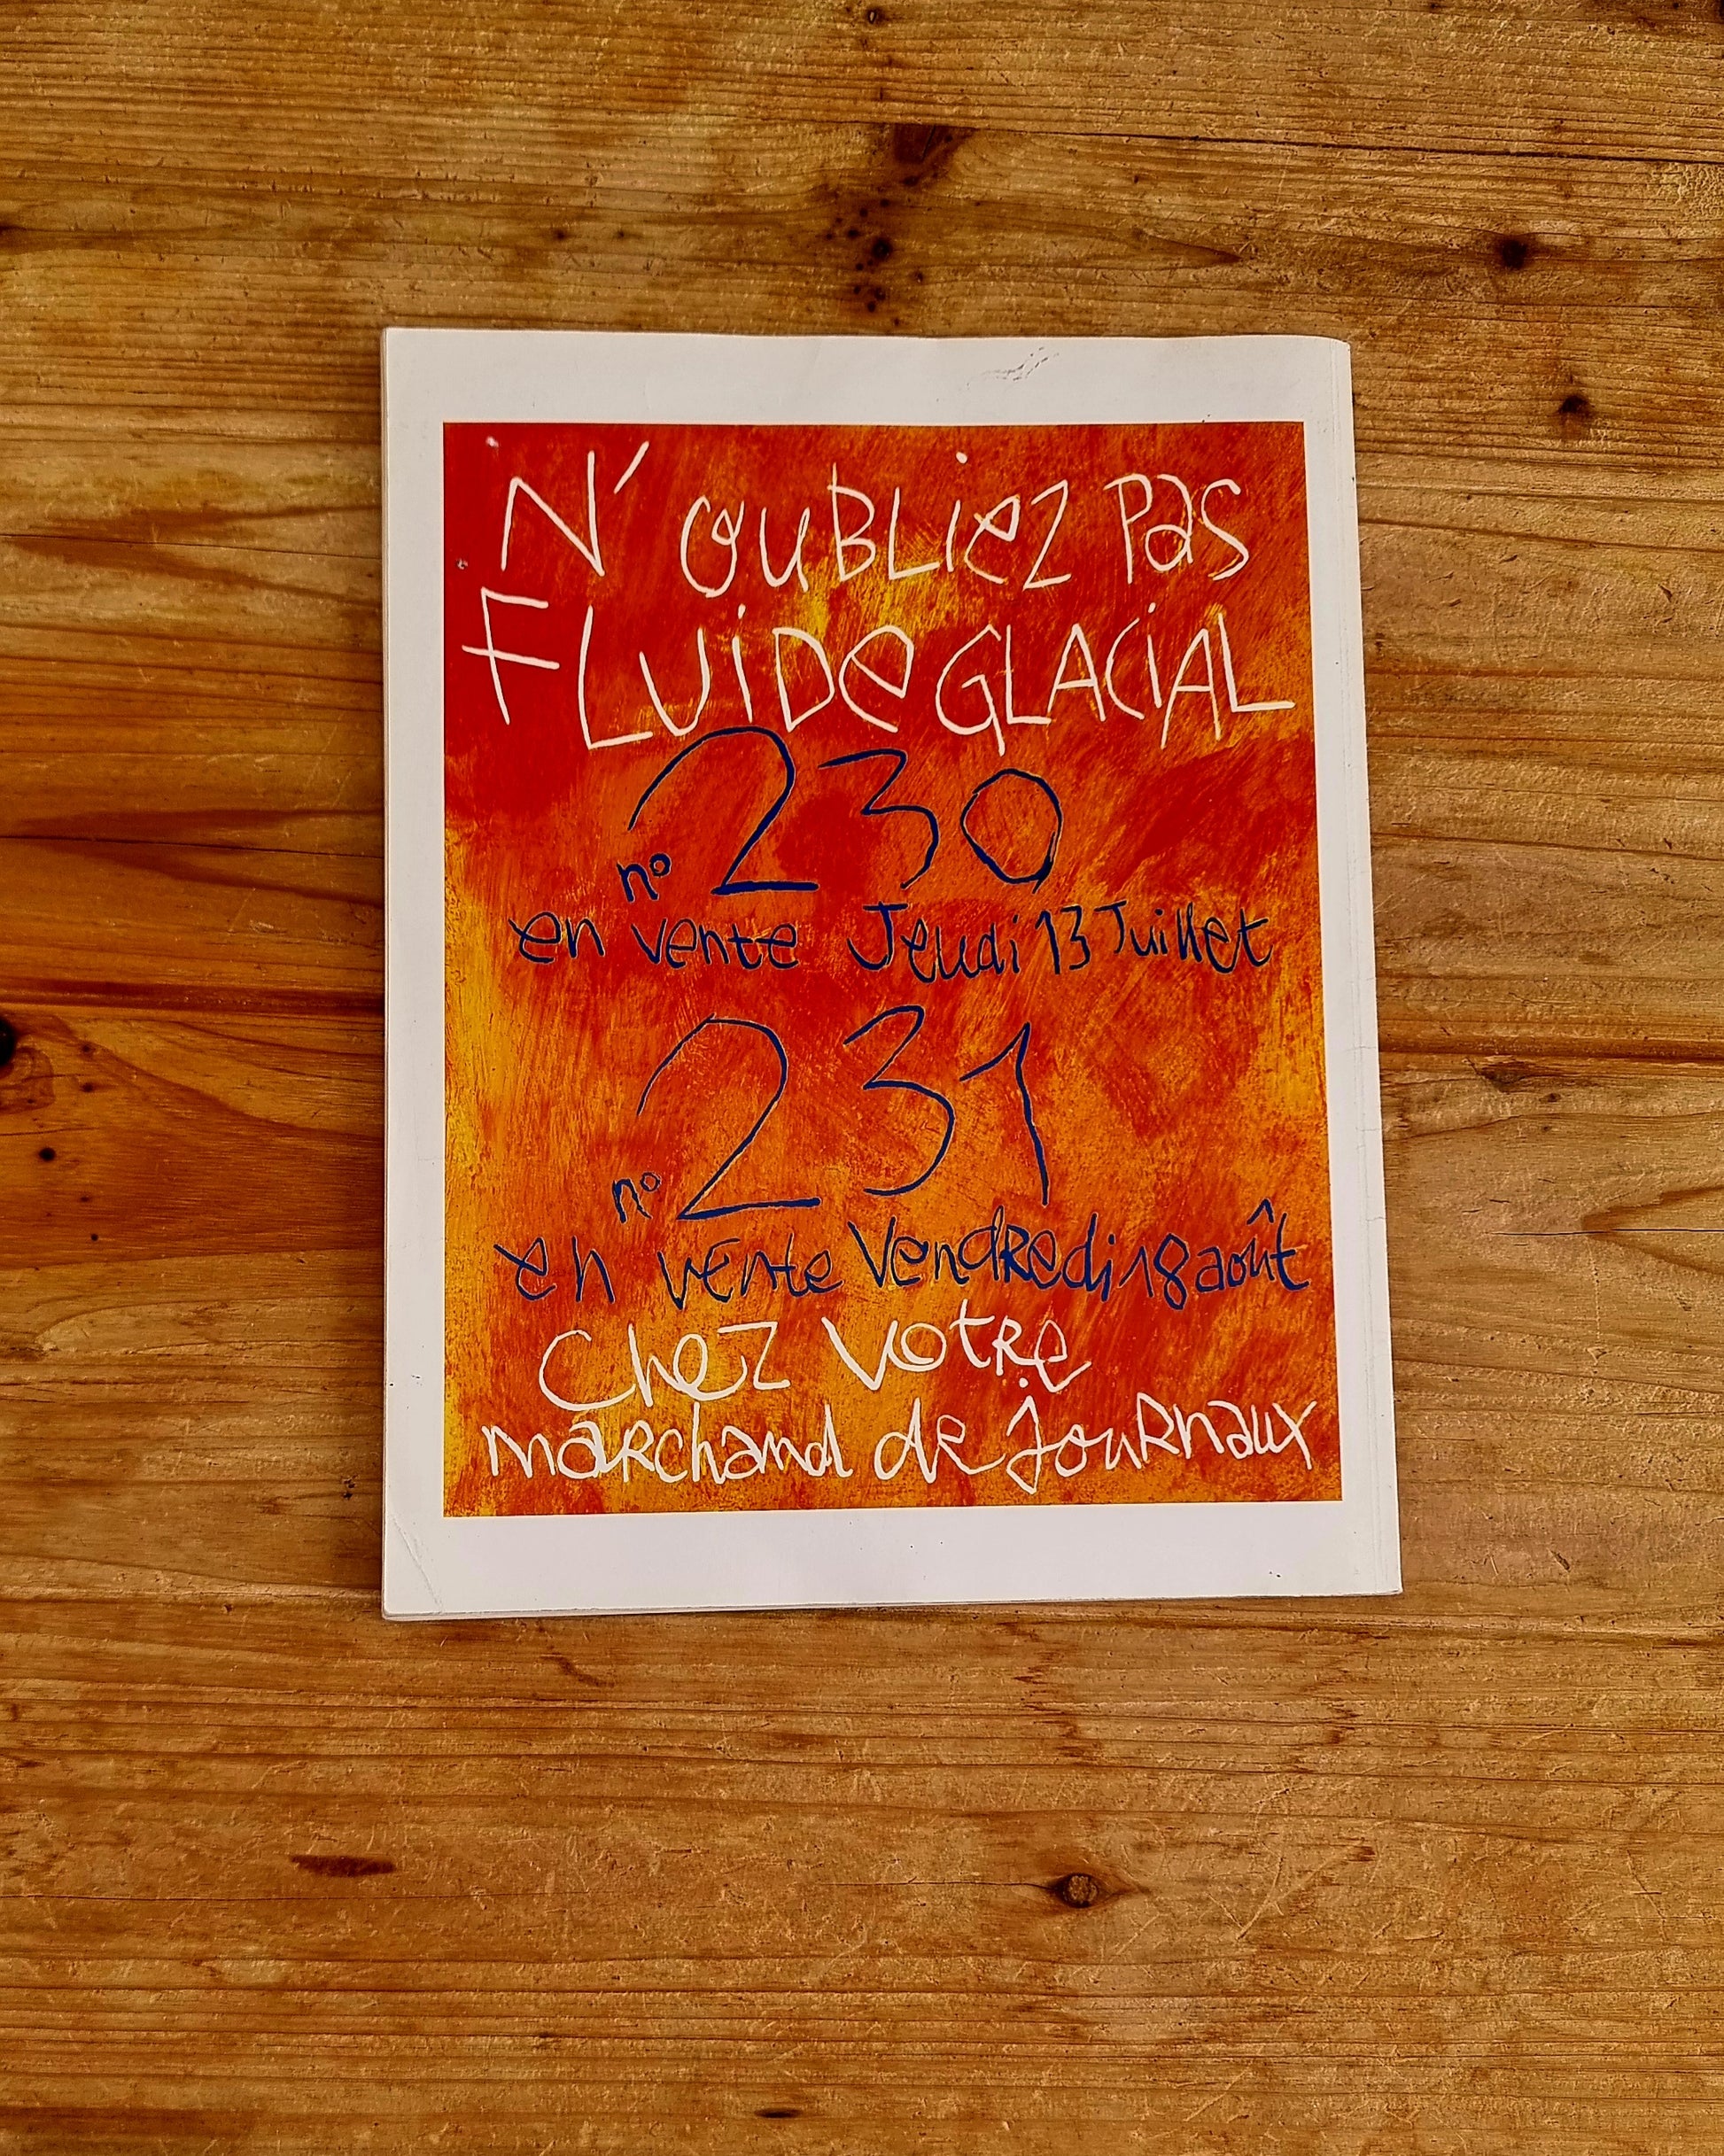 N'oubliez pas
FLUiDe GLACiAL
n° 230
en vente Jeudi 13 Juillet
n° 231
en vente Vendredi 18 août
Chez votre
marchand de journaux